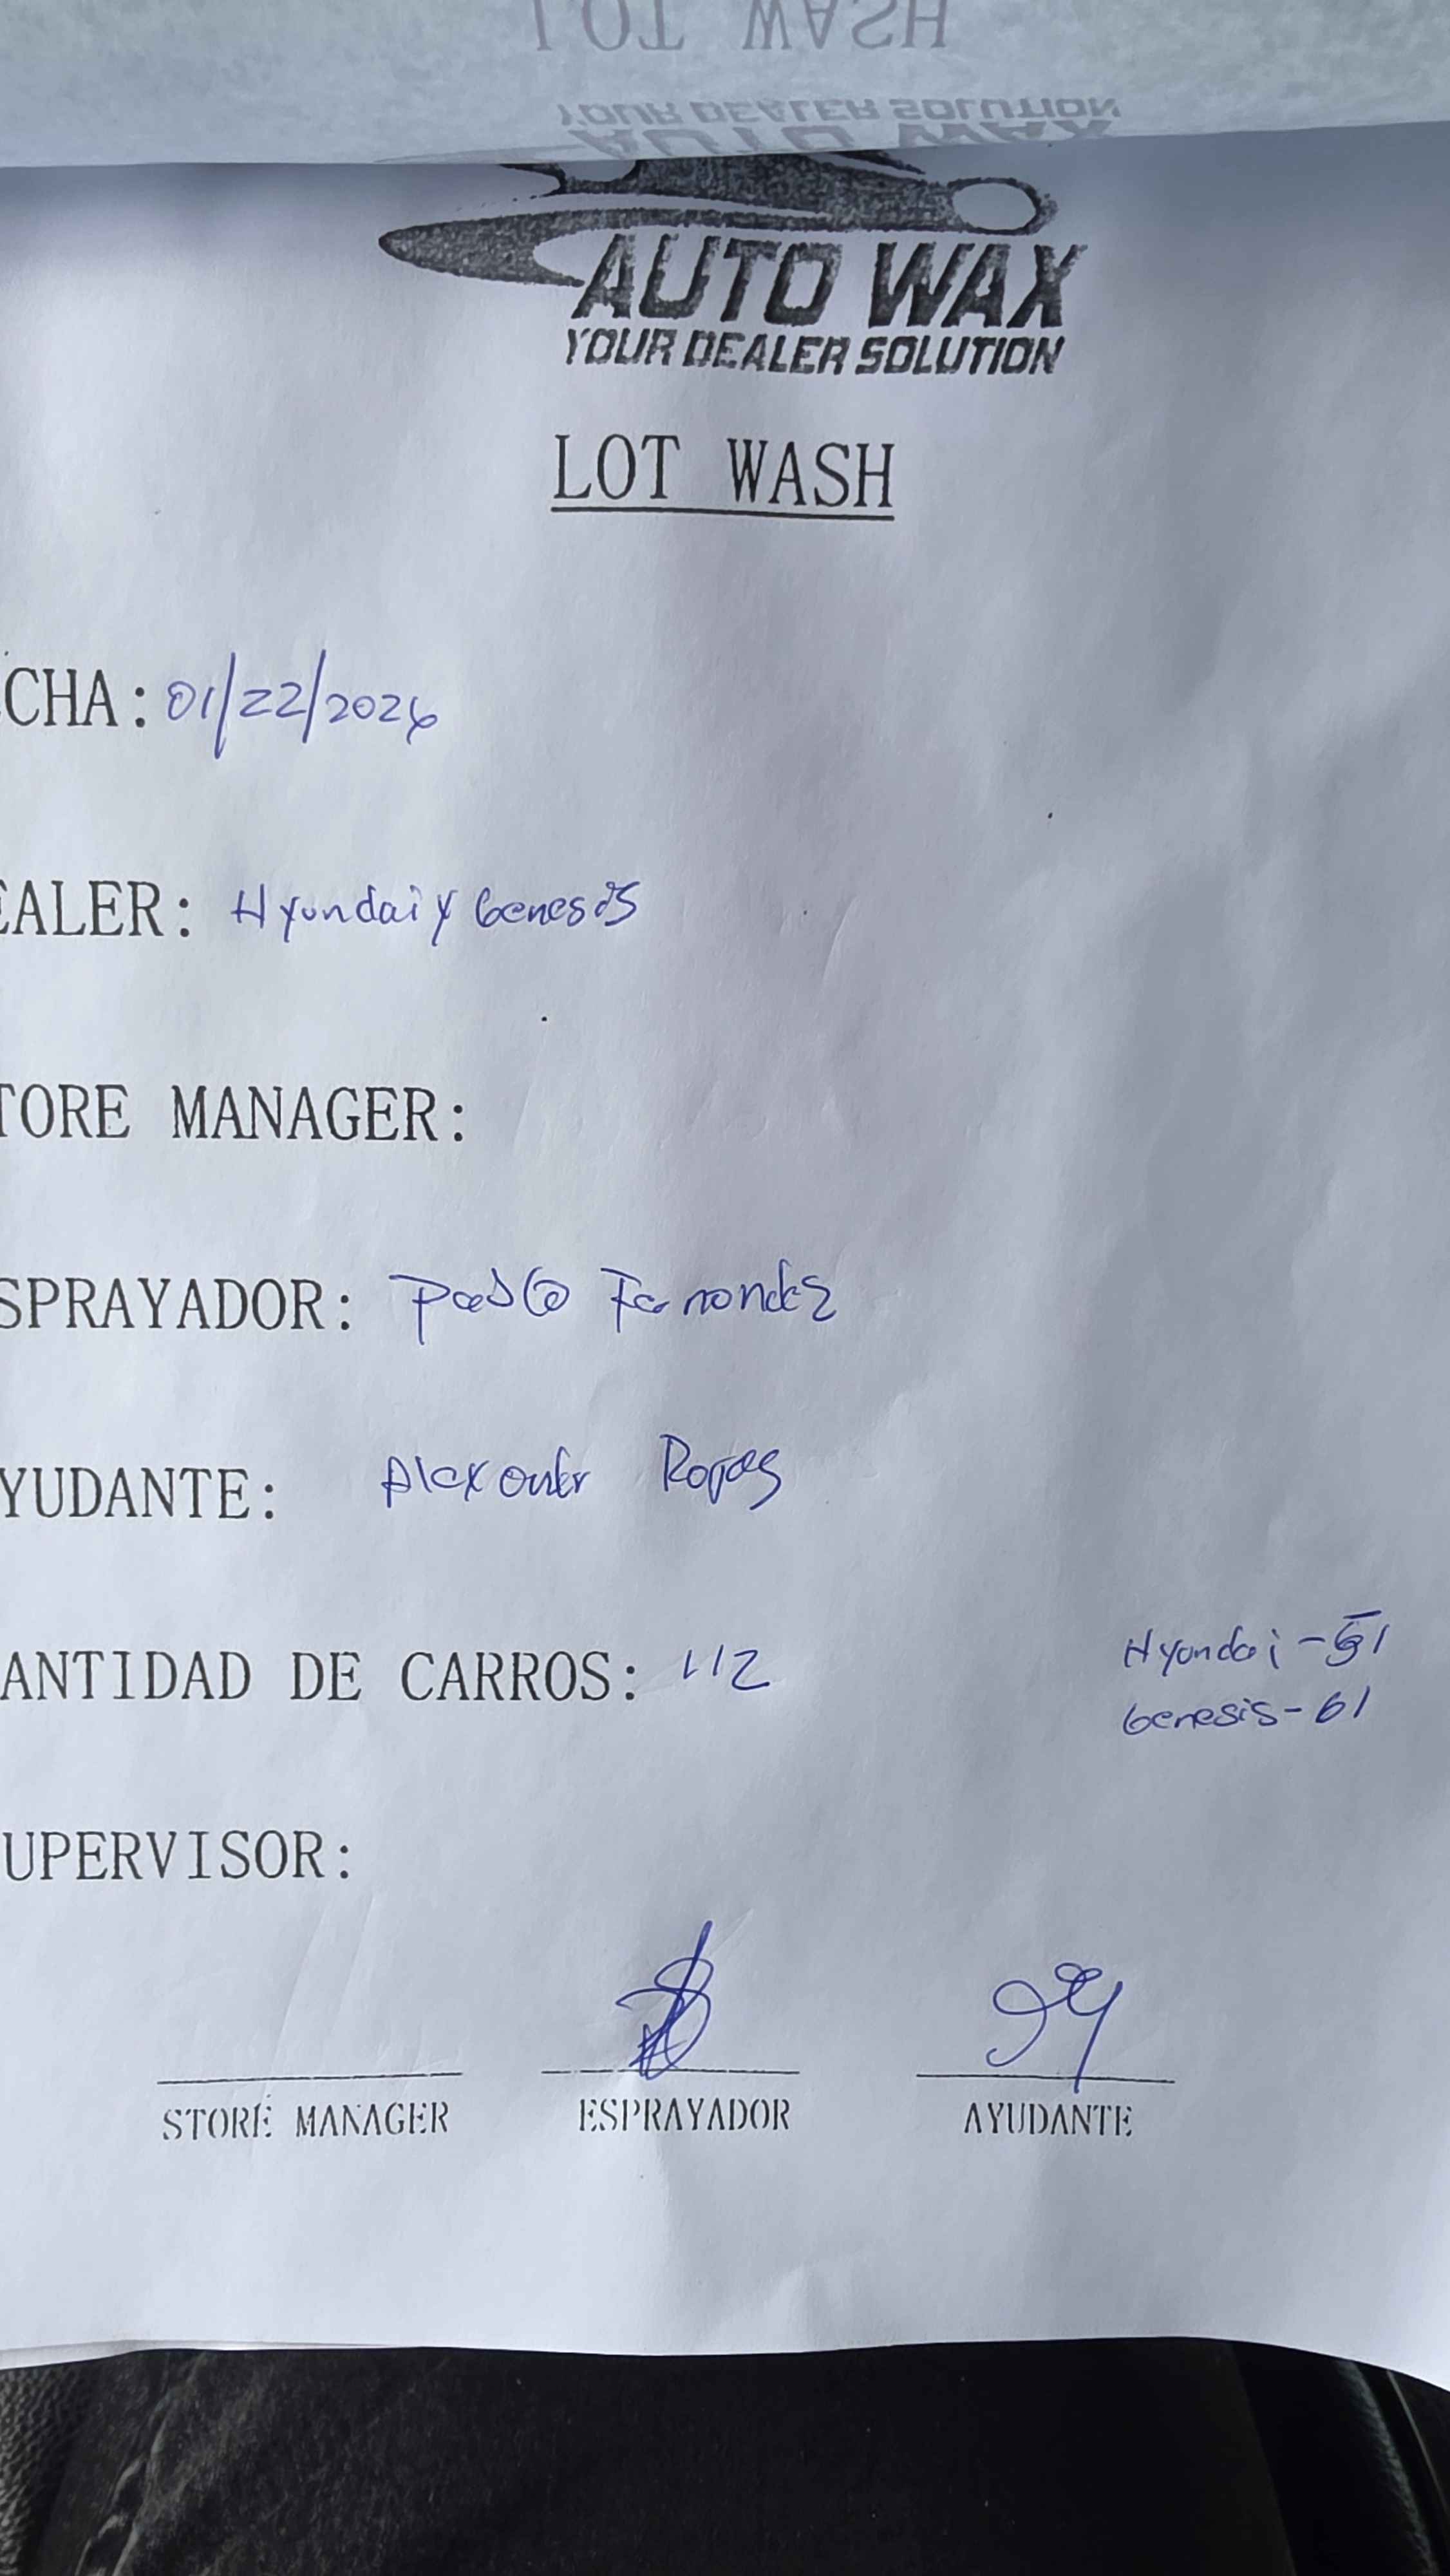 LOT WASH
YOUR DEALER SOLUTION
AUTO WAX
AUTO WAX
YOUR DEALER SOLUTION
LOT WASH
CHA: 01/22/2026
EALER: Hyundai y Genesis
TORE MANAGER:
SPRAYADOR: Pablo Fernandez
YUDANTE: Alexander Rojas
ANTIDAD DE CARROS: 112
Hyundai - 51
Genesis - 61
UPERVISOR:
STORE MANAGER ESPRAYADOR AYUDANTE